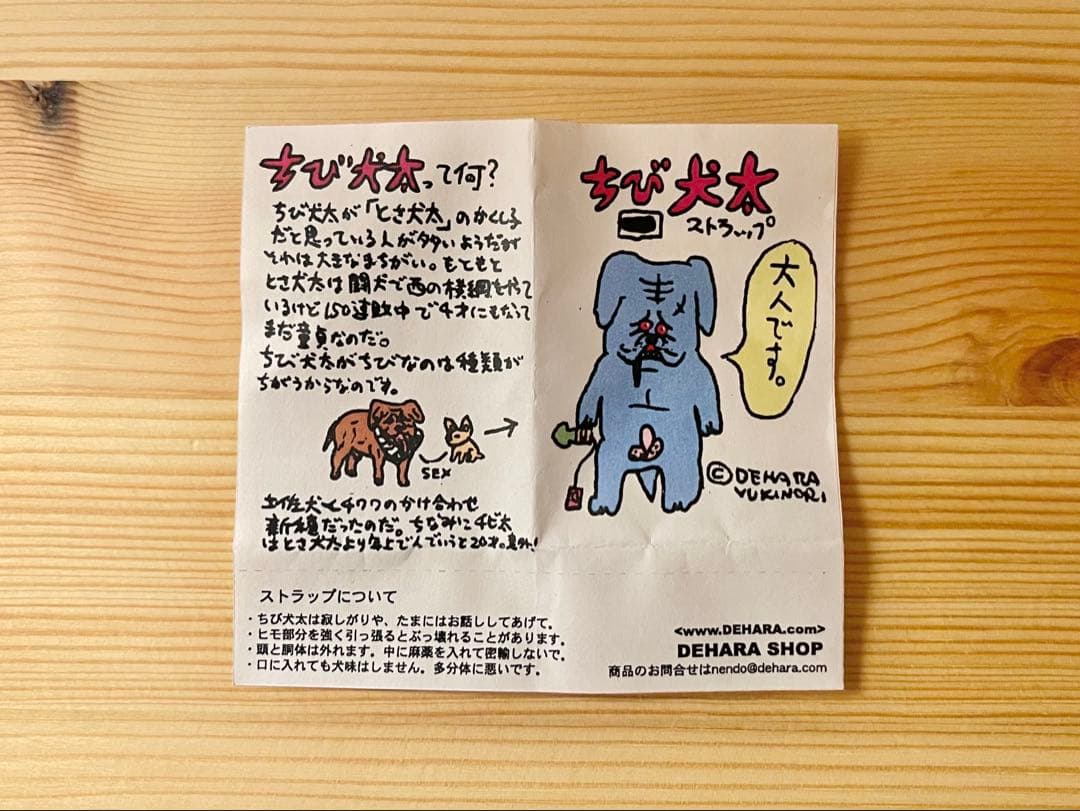 ちび犬太って何?
ちび犬太が「とさ犬太」のかくし子
だと思っている人が多いようだが
それは大きなまちがい。もともと
とさ犬太は闘犬で西の横綱をやって
いるけど150連敗中で4才にもなって
まだ童貞なのだ。
ちび犬太がちびなのは種類が
ちがうからなのです。
SEX
土佐犬とチワワのかけ合わせ
新種だったのだ。ちなみにチビ太
はとさ犬太より年上で人でいうと20才。意外!
ストラップについて
・ちび犬太は寂しがりや、たまにはお話ししてあげて。
・ヒモ部分を強く引っ張るとぶっ壊れることがあります。
・頭と胴体は外れます。中に麻薬を入れて密輸しないで。
・口に入れても犬味はしません。多分体に悪いです。
ちび犬太
ストラップ
大人です。
©DEHARA
YUKINORI
<www.DEHARA.com>
DEHARA SHOP
商品のお問合せはnendo@dehara.com